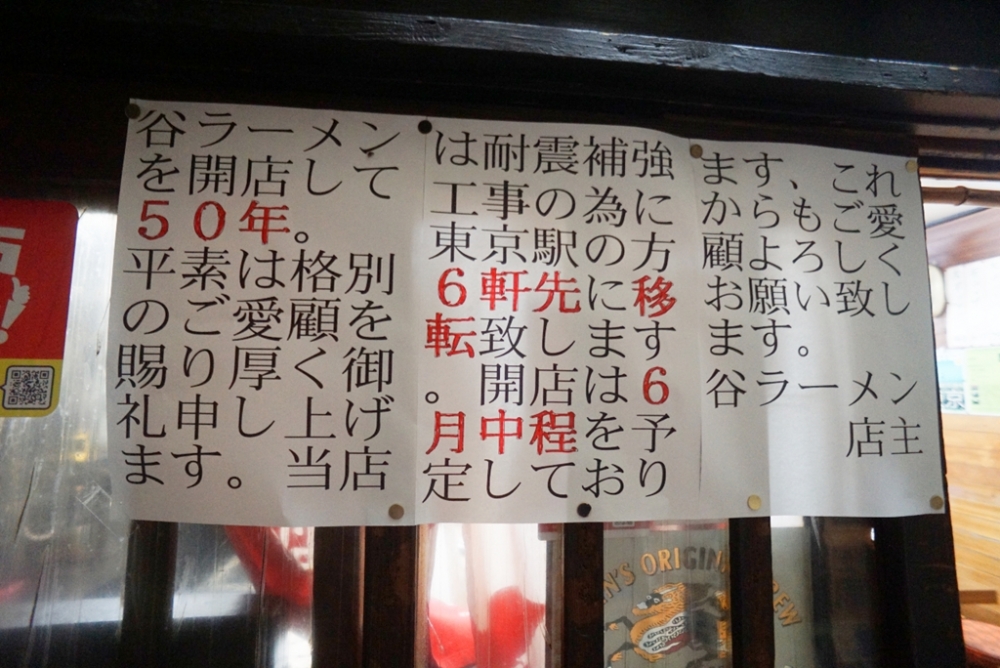 谷ラーメン
を開店して
50年。
平素は格別
のご愛顧を
賜り厚く御
礼申し上げ
ます。当店
は耐震補強
工事の為に
東京駅の方
6軒先に移
転致します
。開店は6
月中程を予
定しており
ます、これ
からもご愛
顧よろしく
お願い致し
ます。
谷ラーメン
店主
N'S ORIGIN
EW